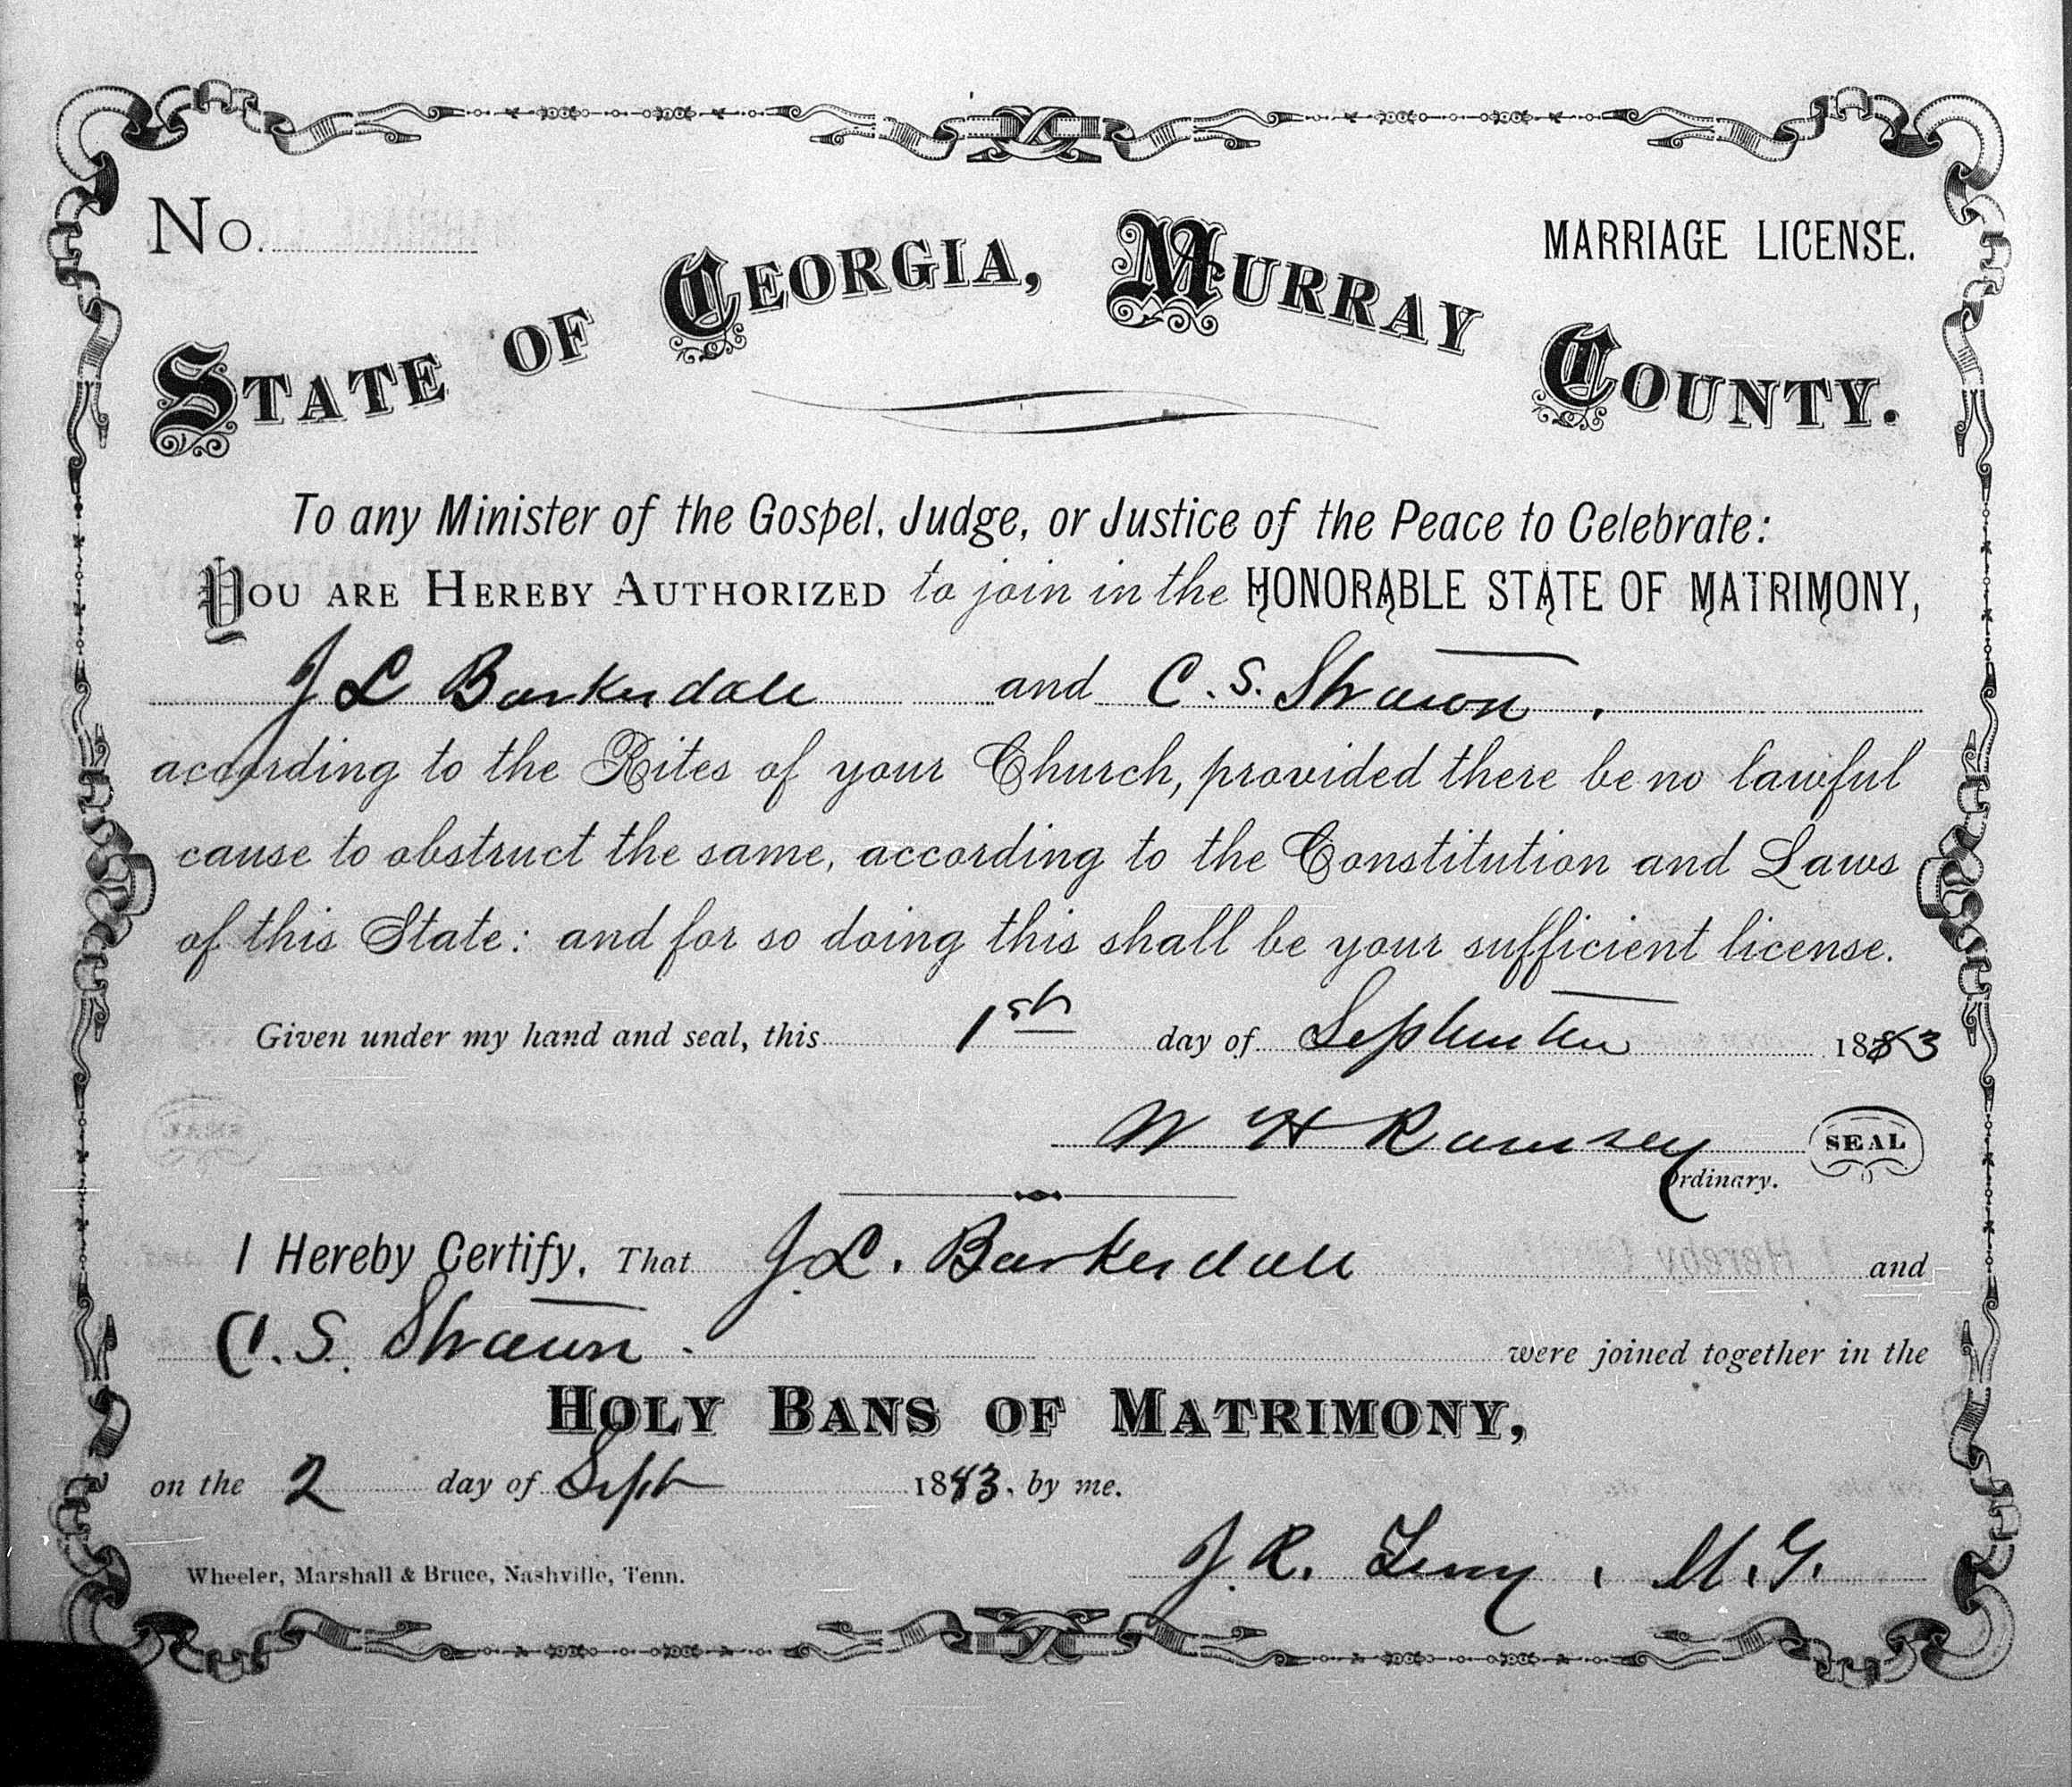 No.
MARRIAGE LICENSE.
STATE OF GEORGIA, MURRAY COUNTY.
To any Minister of the Gospel, Judge, or Justice of the Peace to Celebrate:
YOU ARE HEREBY AUTHORIZED to join in the HONORABLE STATE OF MATRIMONY,
J L Barkesdale and C. S. Strawn.
according to the Rites of your Church, provided there be no lawful
cause to obstruct the same, according to the Constitution and Laws
of this State: and for so doing this shall be your sufficient license.
Given under my hand and seal, this 1st day of September 1883
W H Ramsey SEAL
Ordinary.
I Hereby Certify, That J. L. Barkesdale and
C. S. Strawn. were joined together in the
HOLY BANS OF MATRIMONY,
on the 2 day of Sept 1883. by me.
J. R. M. G.
Wheeler, Marshall & Bruce, Nashville, Tenn.